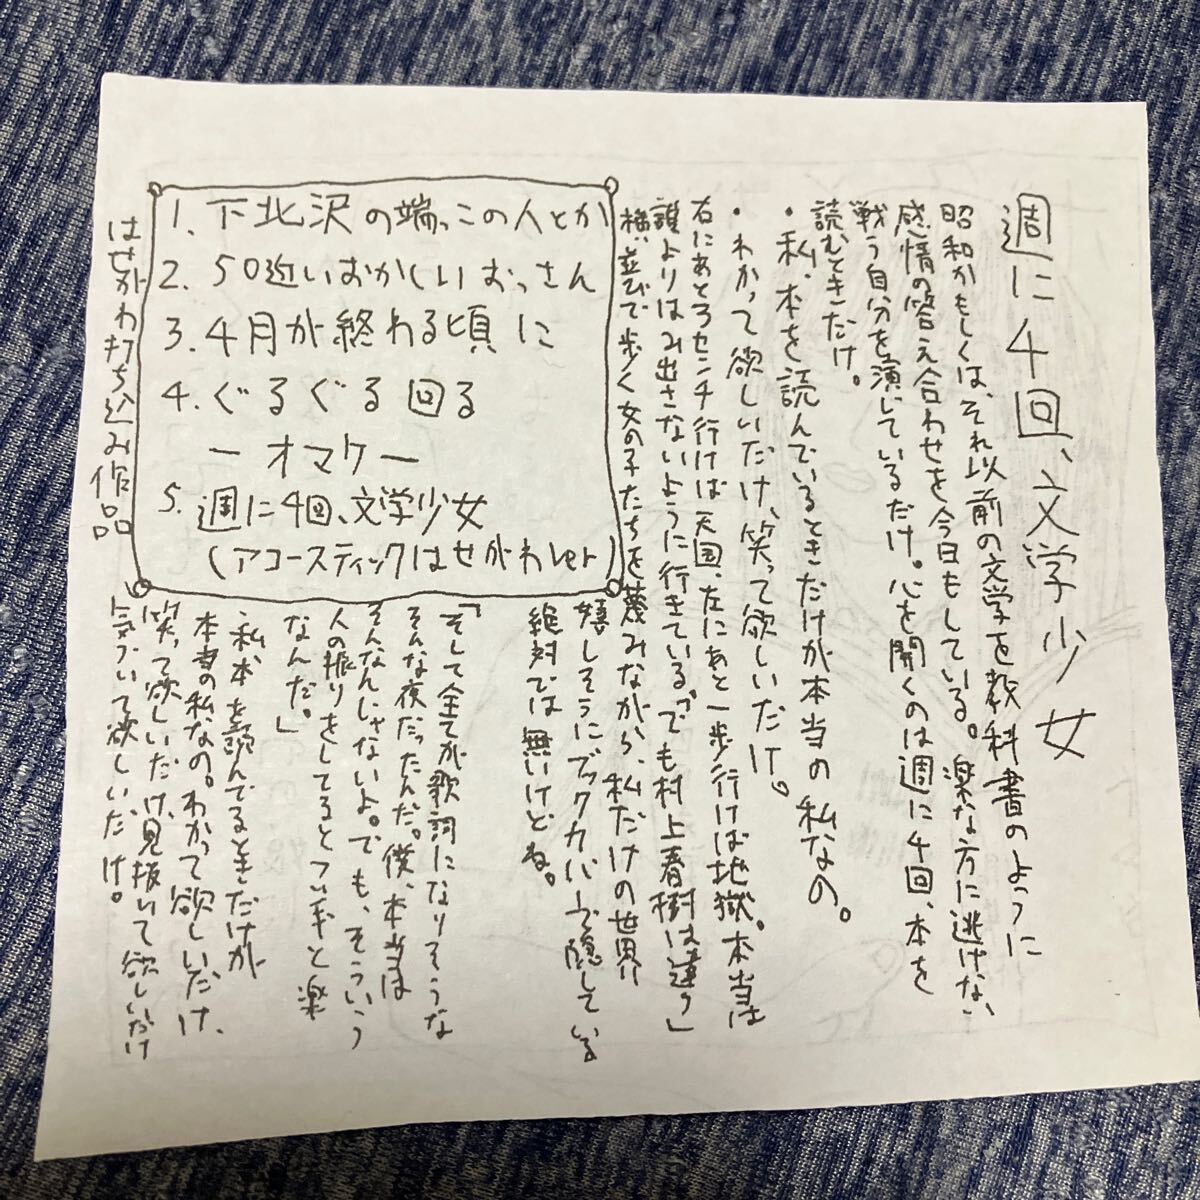 週に4回、文学少女
昭和かもしくは、それ以前の文学を教科書のように
感情の答え合わせを今日もしている。楽な方に逃げない
戦う自分を演じているだけ。心を開くのは週に4回、本を
読むときだけ。
・私、本を読んでいるときだけが本当の私なの。
・わかって欲しいだけ、笑って欲しいだけ。
右にあと3センチ行けば天国、左にあと一歩行けば地獄。本当は
誰よりはみ出さないように行きている「でも村上春樹は違う」
横並びで歩く女の子たちを蔑みながら、私だけの世界に
嬉しそうにブックカバーで隠している
絶対では無いけどね。
「そして全てが歌詞になりそうな
そんな夜だったんだ。僕、本当は
そんなんじゃないよ。でも、そういう
人の振りをしてるとつい手と楽
なんだ。」
・私、本を読んでるときだけが
本当の私なの。わかって欲しいだけ、
笑って欲しいだけ、見抜いて欲しいだけ
気づいて欲しいだけ。
1. 下北沢の端っこの人とか
2. 50近いおかしいおっさん
3. 4月が終わる頃に
4. ぐるぐる回る
ー オマケ ー
5. 週に4回、文学少女
(アコースティックはせがわver)
はせがわ打ち込み作品